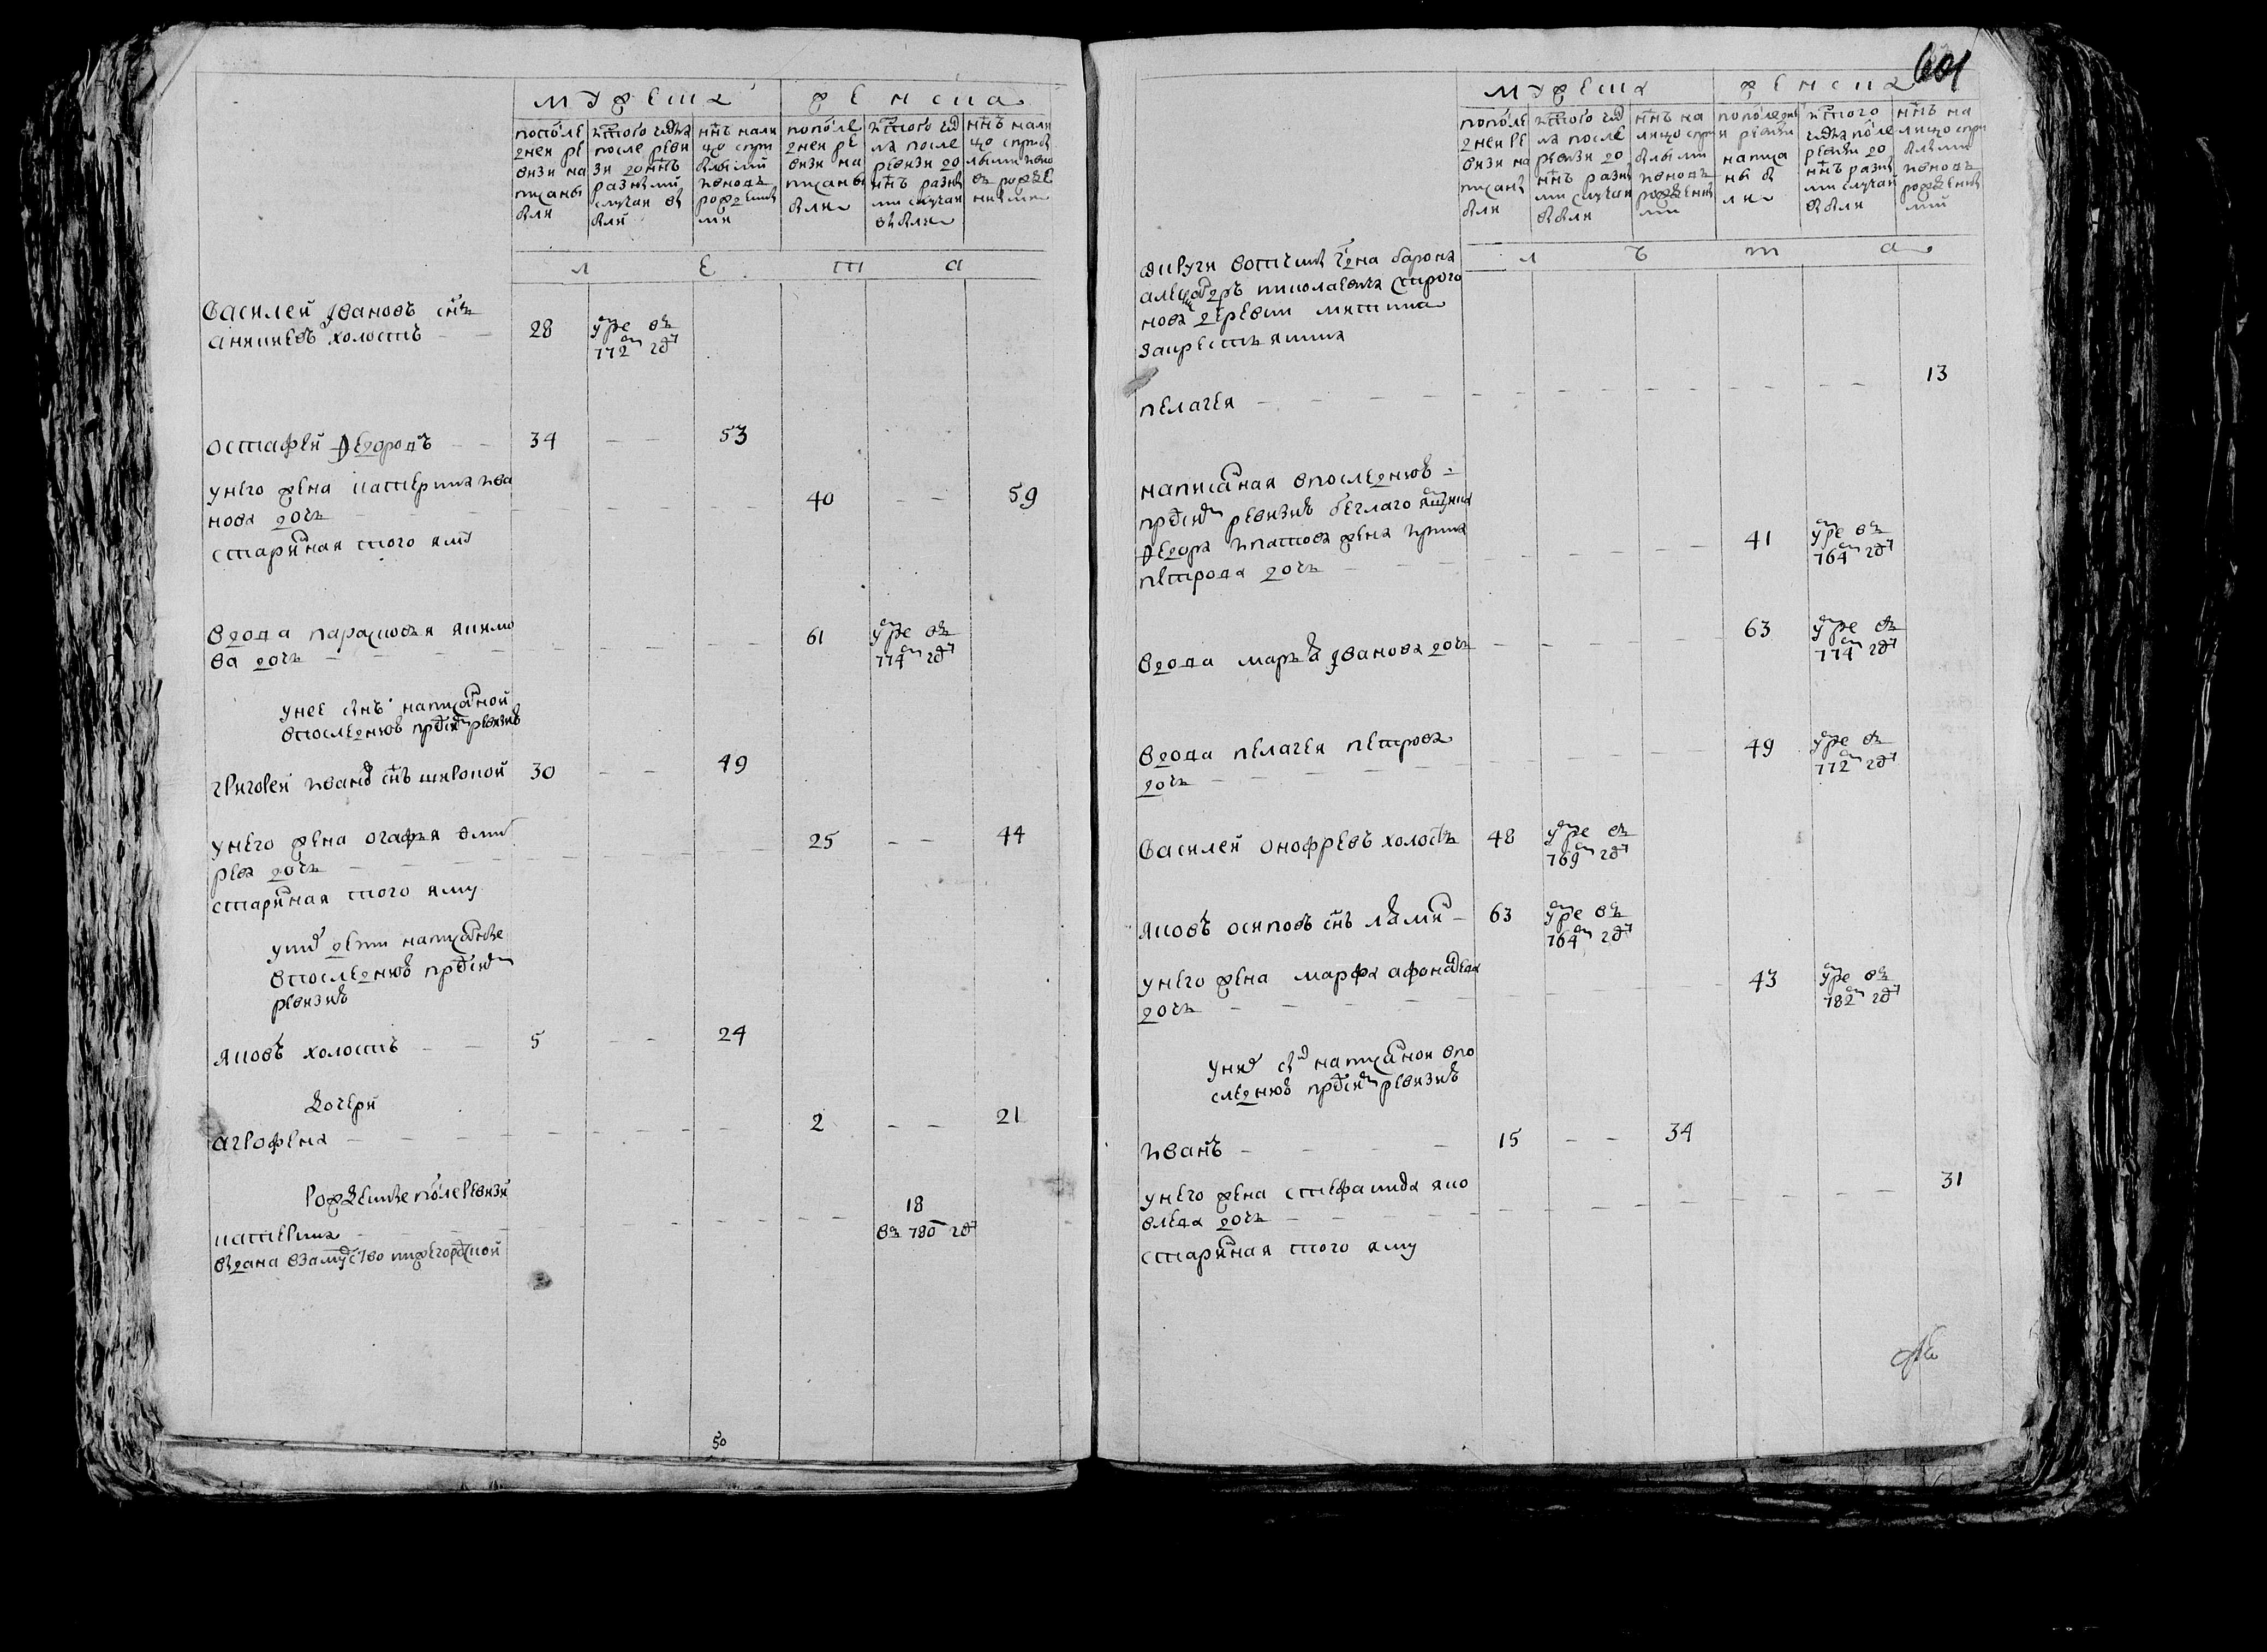 мужеска
женска
пополе
дней ре
визи на
писаны
были
ис того числа
после реви
зи до ннѣ
разными
случаи вы
были
ннѣ нали
цо спри
былыми
ивновь
рожденны
ми
пополе
дней ре
визи на
писаны
были
ис того чис
ла после
ревизи до
ннѣ разны
ми случаи
выбыли
ннѣ нали
цо спри
былыми ивно
вь рожде
ными
л е т а
Василей Ивановъ снъ
холостъ 28 умре въ
772м году
Остафей Федоровъ 34 53
унего жена катерина ива
нова дочь 40 59
стариная того яму
Вдова парасковья якимо
ва дочь 61 умре въ
774м году
унее снъ написаной
впоследнюю предидущую ревизию
григорей ивановъ снъ широкой 30 49
унего жена огафья дми
рева дочь 25 44
стариная того яму
унихъ дети написаные
впоследнюю предидущую
ревизию
яковъ холостъ 5 24
дочери
агрофена 2 21
рожденые после ревизи
катерина 18
въ 780 году
выдана взамужство нижегородской
50
601
мужеска
женска
пополе
дней ре
визи на
писаны
были
ис того чис
ла после
ревизи до
ннѣ разны
ми случаи
выбыли
ннѣ на
лицо спри
былыми
ивновь
рожденны
ми
пополедней
ревизи
написа
ны бы
ли
ис того
числа после
ревизи до
ннѣ разны
ми случаи
выбыли
ннѣ на
лицо спри
былыми
ивновь
рожденны
ми
л ѣ т а
округи вотчины гдна барона
александръ николаевича строго
нова деревни микитина
закрестьянина
пелагея 13
написаная впоследнюю
предидущую ревизию беглаго ямщика
Федора ипатова жена ирина
петрова дочь 41 умре въ
764м году
Вдова марья Иванова дочь 63 умре въ
774м году
Вдова пелагея петрова
дочь 49 умре въ
772м году
Василей онофревъ холостъ 48 умре въ
769м году
яковъ осиповъ снъ 63 умре въ
764м году
унего жена марфа афонасева
дочь 43 умре въ
782м году
унихъ снъ написаной впо
следнюю предидущую ревизию
иванъ 15 34
унего жена стефанида яко
влева дочь 31
стариная того яму